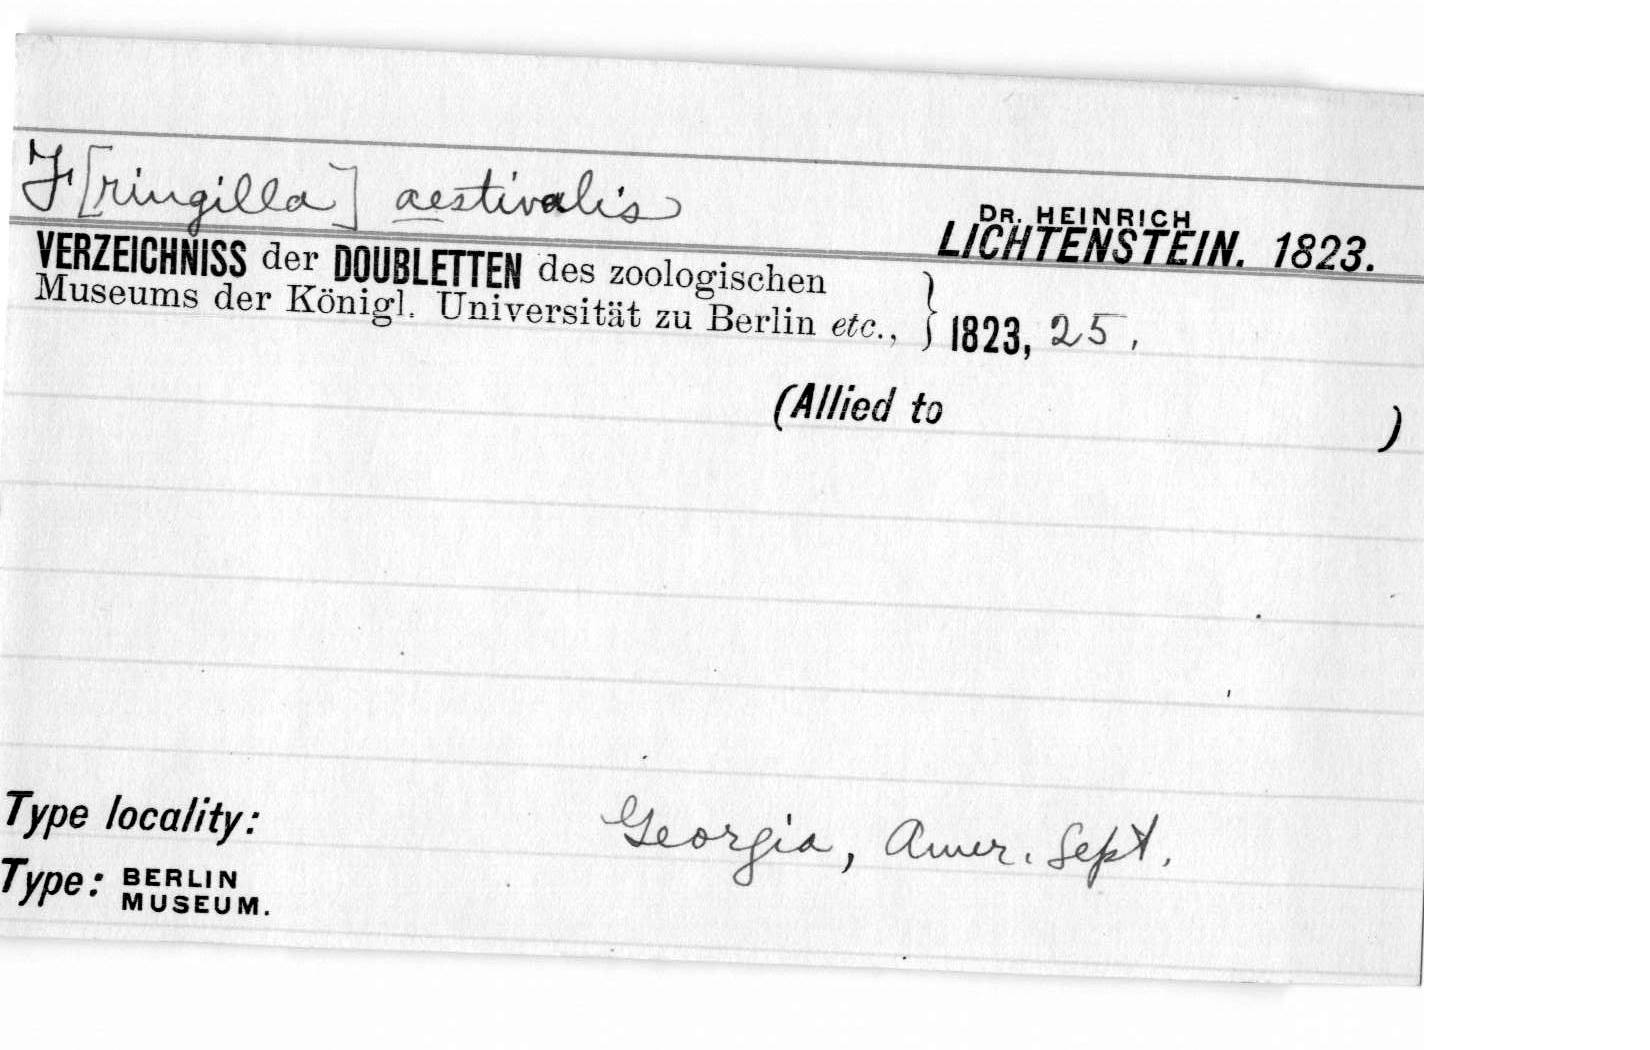 F[ringilla] aestivalis
DR. HEINRICH
LICHTENSTEIN. 1823.
VERZEICHNISS der DOUBLETTEN des zoologischen
Museums der Königl. Universität zu Berlin etc., } 1823, 25,
(Allied to )
Type locality: Georgia, Amer. Sept.
Type: BERLIN
MUSEUM.